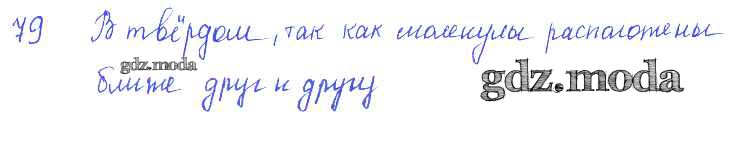 79 В твёрдом, так как молекулы расположены
gdz.moda
ближе друг к другу
gdz.moda